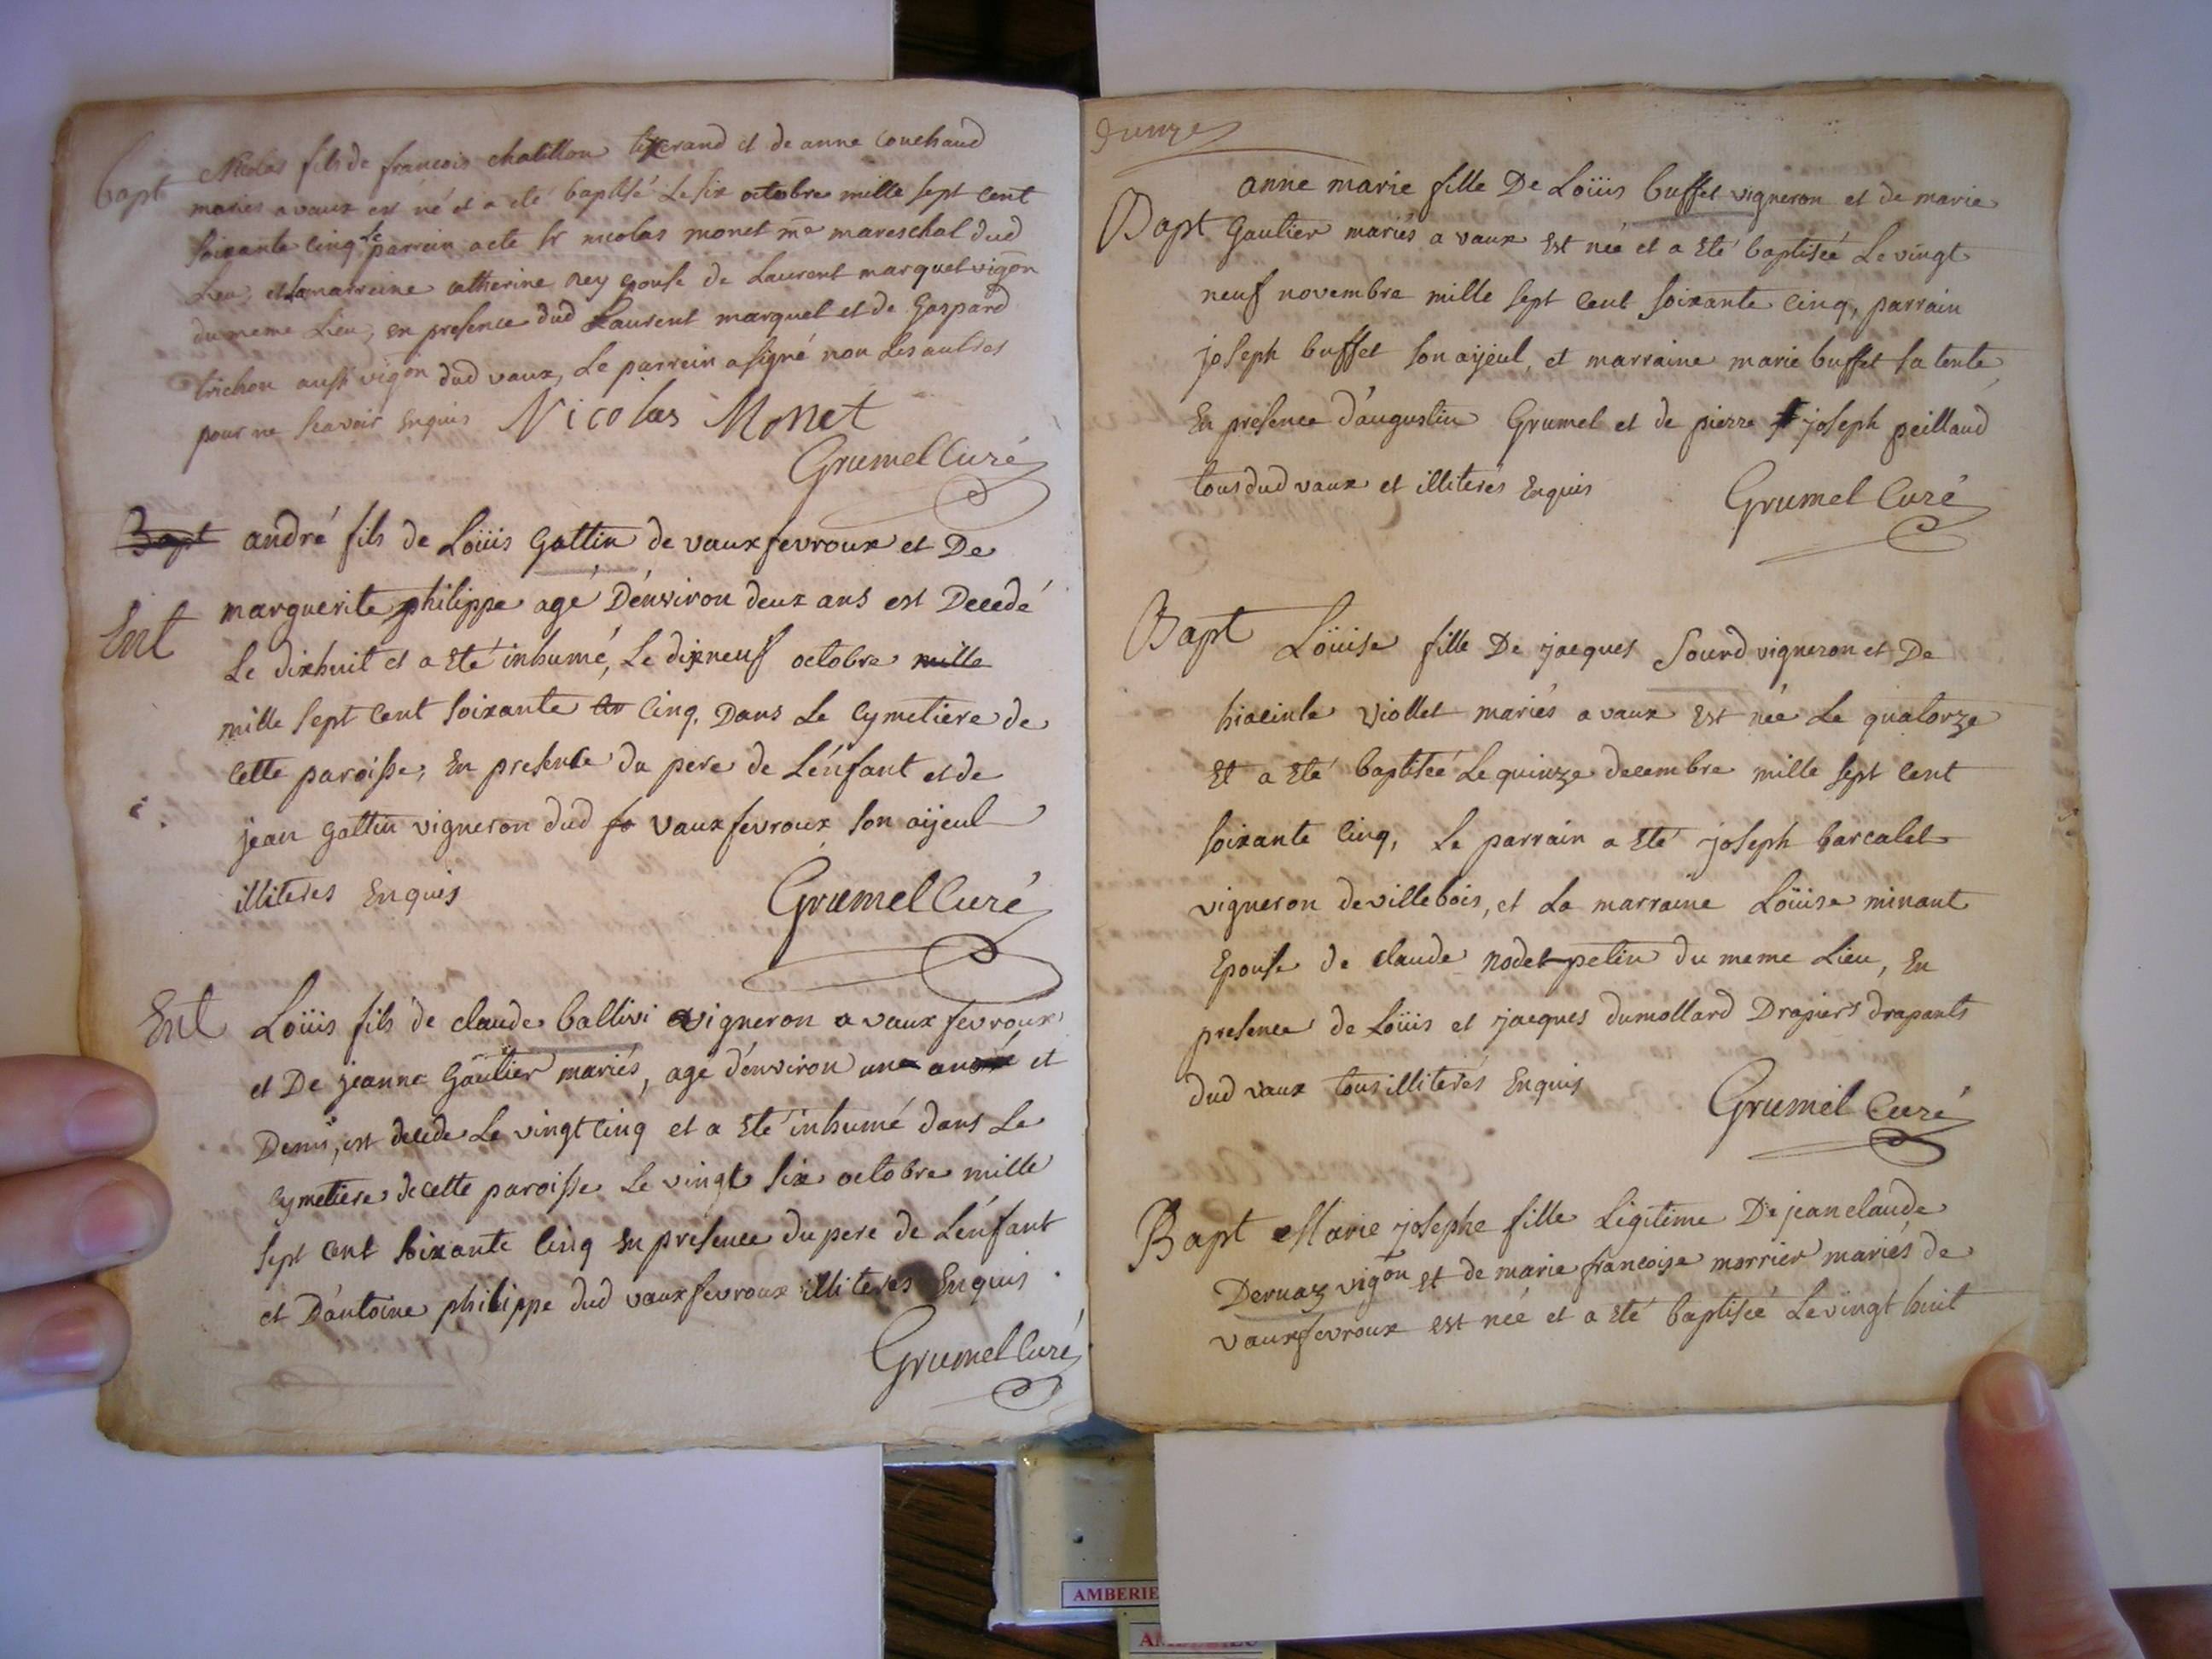 Bapt Nicolas fils de francois chatillon tixerand et de anne couchaud
mariés a vaux est né et a eté baptisé Le six octobre mille sept cent
soixante cinq, le parrein a eté sr nicolas monet me mareschal dud
Lieu, et La marreine catherine rey epouse de Laurent marquet vigon
du meme Lieu, en presence dud Laurent marquet et de Gaspard
trichon aussi vigon dud vaux, Le parrein a signé non Les aultres
pour ne scavoir Enquis Nicolas Monet
Grumel Curé
Bapt andré fils de Loüis Gottin de vauxfevroux et De
Ent marguerite philippe agé D'environ deux ans est Decedé
Le dixhuit et a Eté inhumé, Le dixneuf octobre mille
mille sept cent soixante cin Cinq, Dans Le Cymetiere de
Cette paroisse, En presence du pere de L'enfant et de
jean gottin vigneron dud fe vauxfevroux son aÿeul
illiterés Enquis
Grumel Curé
Ent Loüis fils de claude ballivi vigneron a vauxfevroux
et De jeanne Gautier mariés, agé d'environ un an et
Demi, est decedé Le vingt cinq et a Eté inhumé dans Le
Cymetiere de cette paroisse Le vingt six octobre mille
sept cent soixante cinq En presence du pere de L'enfant
et D'antoine philippe dud vauxfevroux illiterés Enquis
Grumel Curé
onze
anne marie fille De Loüis buffet vigneron et de marie
Bapt Gautier mariés a vaux Est née et a Eté baptisée Le vingt
neuf novembre mille sept cent soixante cinq, parrain
joseph buffet son aÿeul, et marraine marie buffet sa tente
En presence d'augustin Grumel et de pierre joseph peillaud
tous dud vaux et illiterés Enquis
Grumel Curé
Bapt Loüise fille De jacques Sourd vigneron et De
hiacinte Viollet mariés a vaux Est née Le quatorze
Et a Eté baptisée Le quinze decembre mille sept cent
soixante cinq, Le parrain a Eté joseph barcalet
vigneron de villebois, et La marraine Loüise minant
Epouse de claude nodet-petin du meme Lieu, En
presence de Loüis et jacques dumollard Drapiers drapants
dud vaux tous illiterés Enquis
Grumel Curé
Bapt Marie josephe fille Legitime De jean claude
Dernaz vigon et de marie francoise morrier mariés de
vauxfevroux est née et a Eté baptisée Le vingt huit
AMBERIE